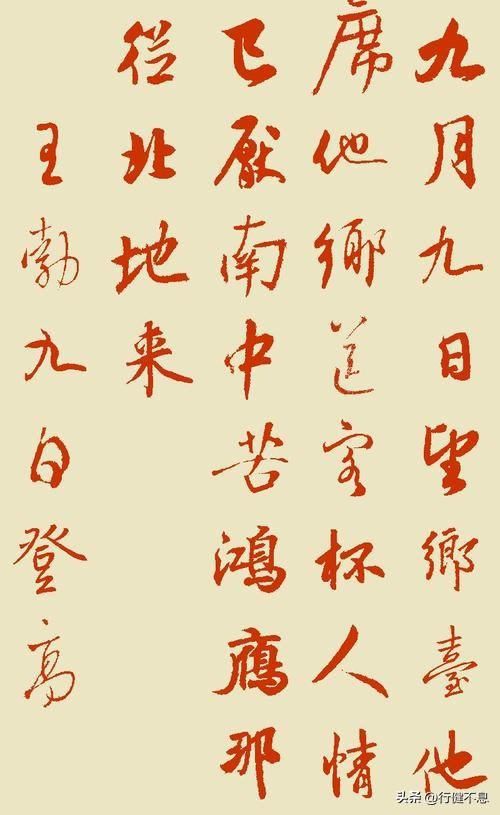 九月九日望鄉臺他
席他鄉送客杯人情
已厭南中苦鴻鴈那
從北地来
王勃九日登高
头条@行健不息